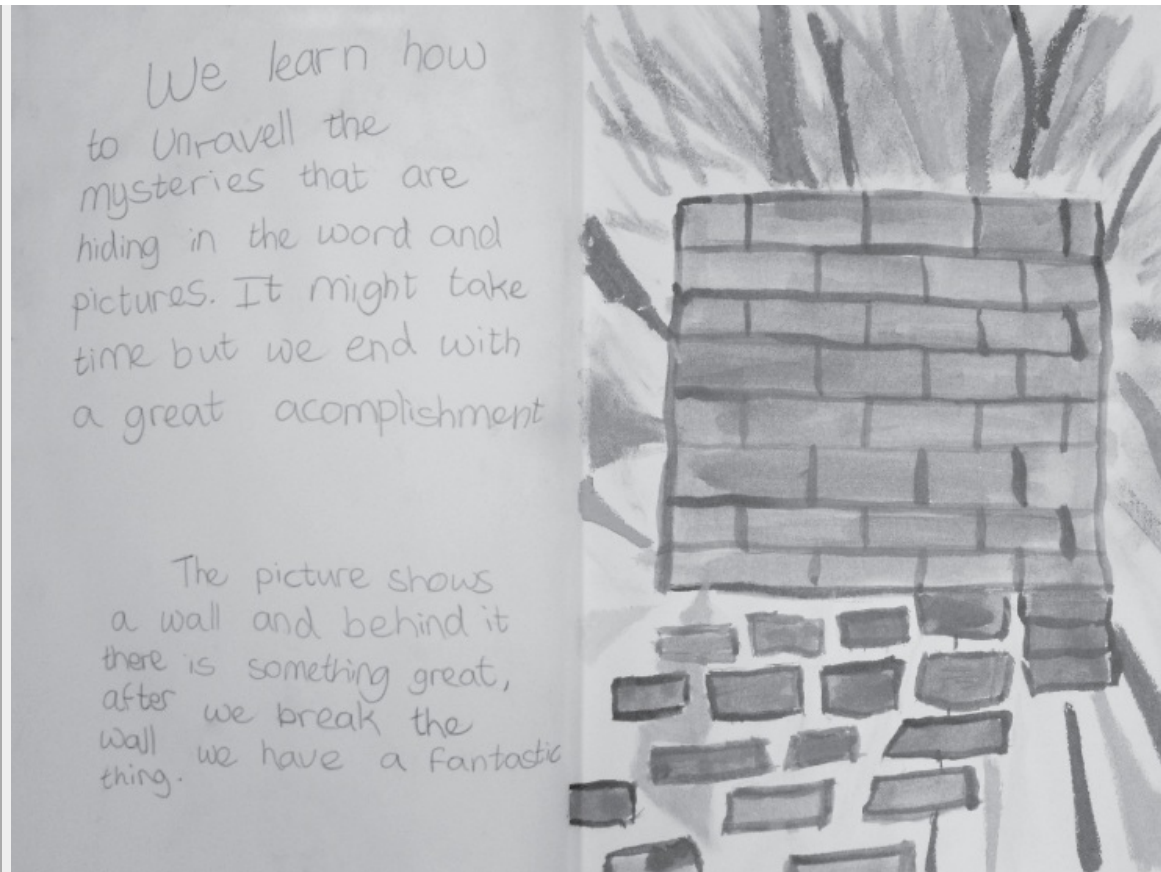 We learn how
to Unravell the
mysteries that are
hiding in the word and
pictures. It might take
time but we end with
a great acomplishment
The picture shows
a wall and behind it
there is something great,
after we break the
wall we have a fantastic
thing.